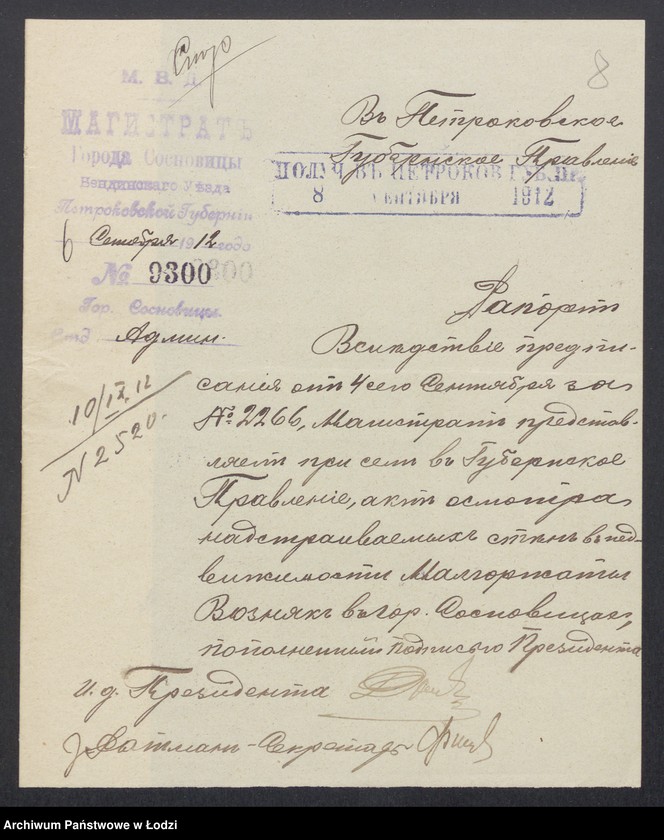 8
М. В. Д.
МАГИСТРАТЪ
Города Сосновицы
Бендинскаго Уѣзда
Петроковской Губерніи
6 Сентября 1912 года
№ 9300
Гор. Сосновицы.
Отд. Админ.
Въ Петроковское
Губернское Правленіе
ПОЛУЧ. ВЪ ПЕТРОКОВ. ГУБ. ПР.
8 СЕНТЯБРЯ 1912
10/IX 12
N 2520.
Рапортъ
Вслѣдствіе предпи-
санія отъ 4 сего Сентября за
№ 2266, Магистратъ представ-
ляетъ при семъ въ Губернское
Правленіе, актъ осмотра
надстраиваемыхъ стѣнъ въ нед-
вижимости Малгоржаты
Вознякъ въ гор. Сосновицахъ,
пополненный подписью Президента
И. д. Президента
Секретарь
Archiwum Państwowe w Łodzi